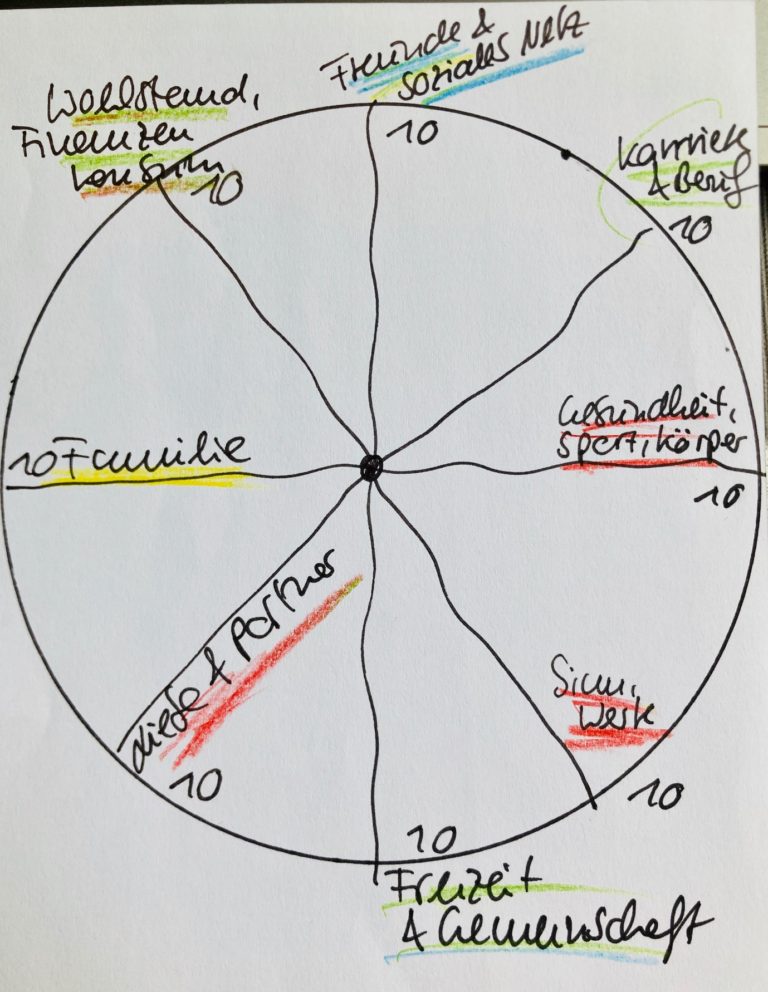 Freunde &
soziales Netz
10
Wohlstand,
Finanzen
Konsum
10
Karriere
& Beruf
10
Gesundheit,
Sport, Körper
10
10 Familie
Liebe & Partner
10
Sinn,
Werte
10
10
Freizeit
& Gemeinschaft